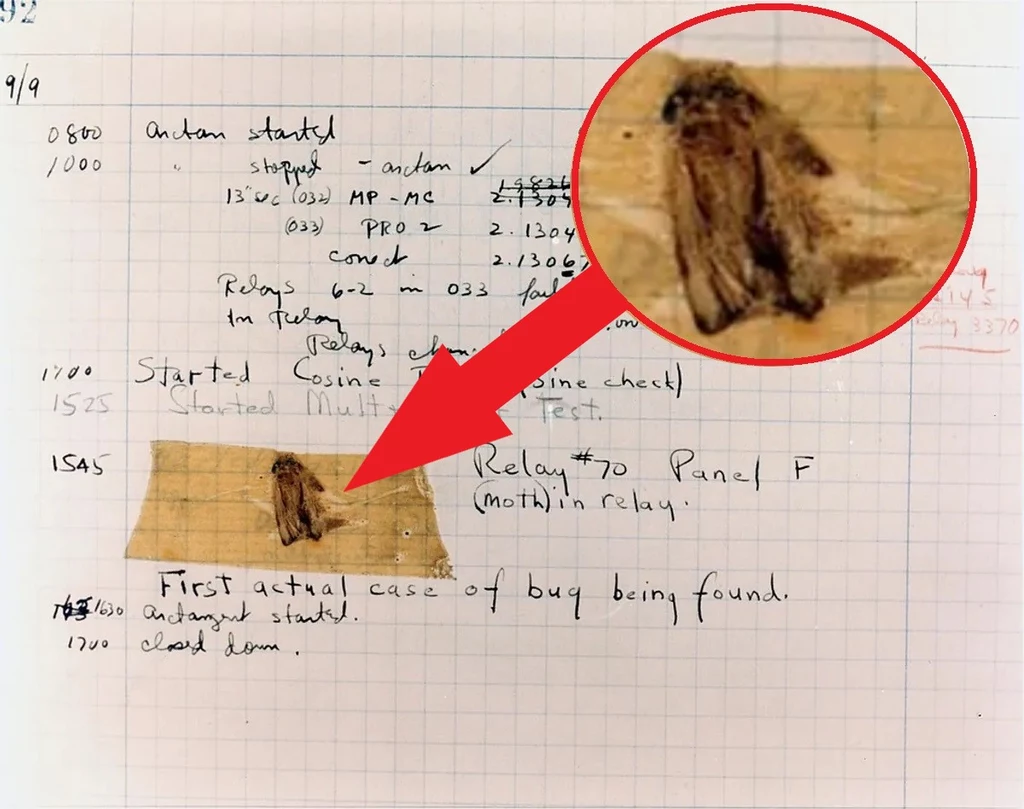 92
9/9
0800 arctan started
1000 " stopped - arctan ✓
13" (032) MP - MC 2.1304
(033) PRO 2 2.1304
conect 2.13067
Relays 6-2 in 033 fail
In Relay
3370
Relays chan
Started Cosine (Sine check)
1525 Started Mult Test.
1545 Relay #70 Panel F
(moth) in relay.
First actual case of bug being found.
1630 arctangent started.
1700 closed down.